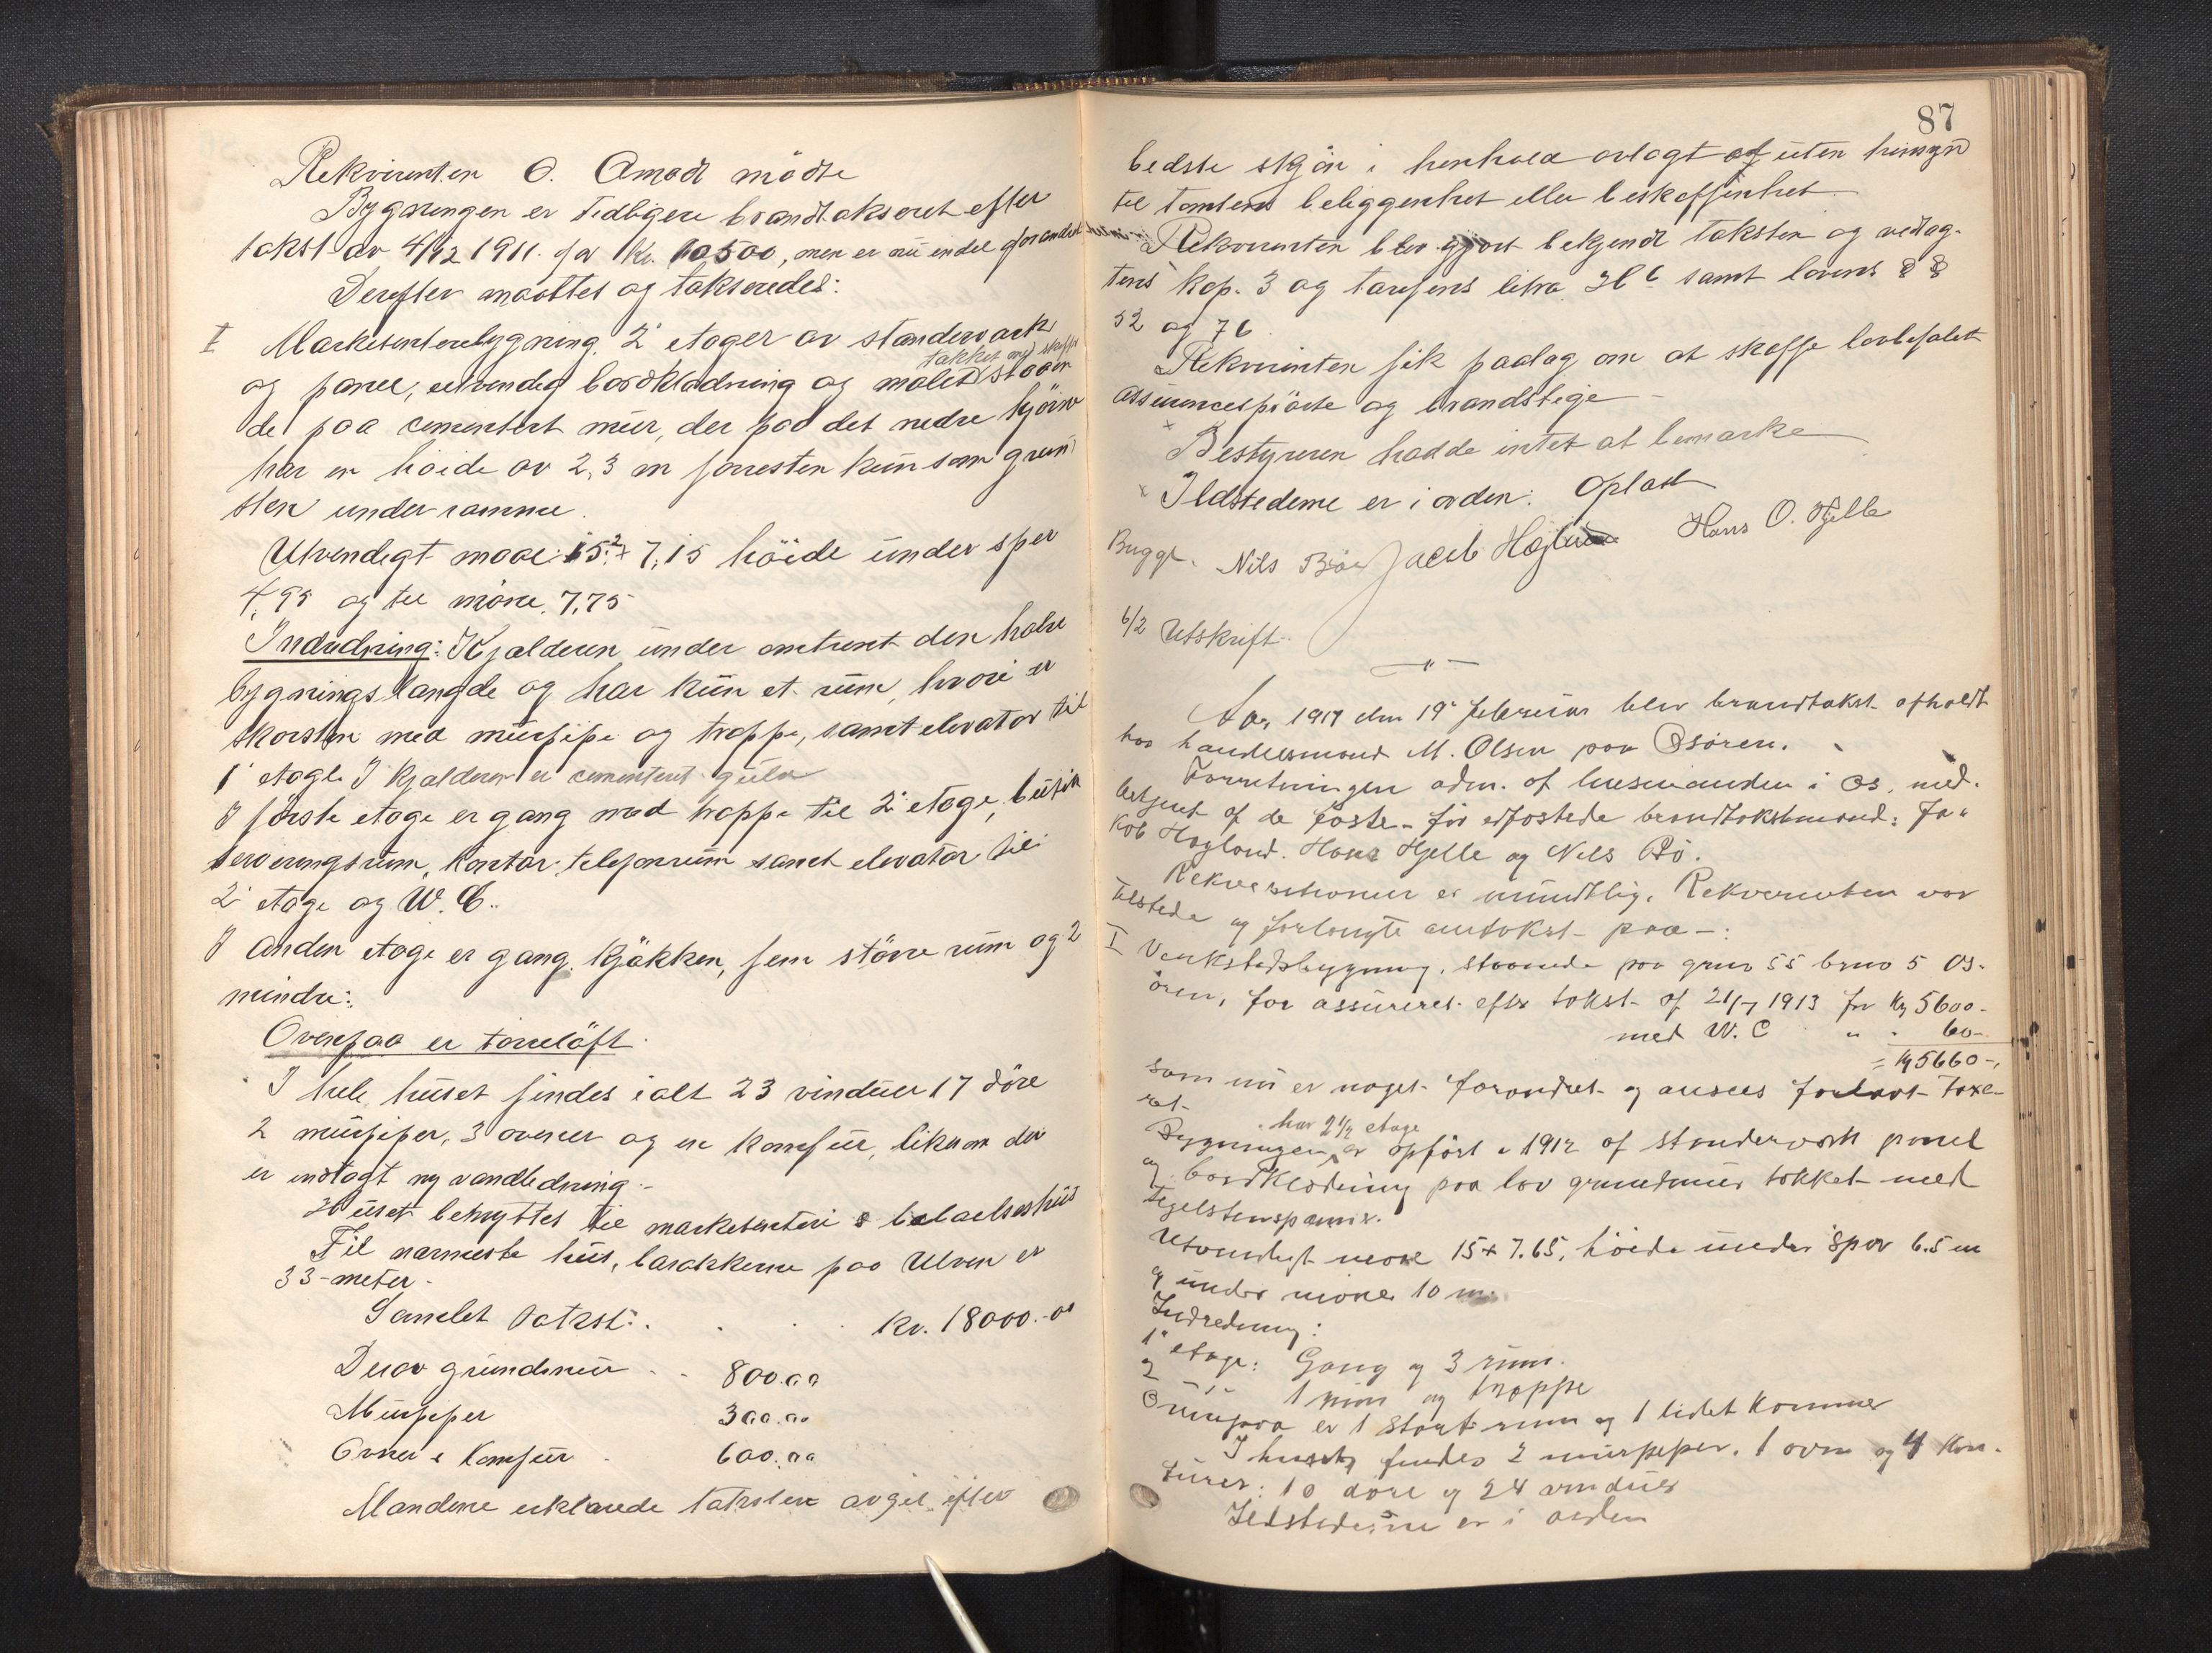 Rekvirenten O. Amodt mödte
Bygningen er tidligere brandtakseret efter
takst av 4/12 1911. for Kr. 10500, men er nu endel forandret
Derefter maaltes og takseredes:
I Marketenteribygning 2 etager av standerverk
takket med skiffer
og panel, utvendig bordklædning og malet staaen
de paa cementert mur, der paa det nedre hjörne
har en höide av 2,3 m forresten kun som grun
sten under ramme.
Utvendigt maal: 15.2 + 7,15 höide under sper
4,95 og til möne 7,75
Indredning: Kjælderen under omtrent den halve
bygnings længde og har kun et rum, hvori er
skorsten med murpipe og trappe, samt elevator til
1' etage. I kjælderen er cementert gulv
I förste etage er gang med trappe til 2' etage, butik
serveringsrum, kontor, telefonrum samt elevator til
2' etage og W. C..
I anden etage er gang, kjökken, fem större rum og 2
mindre:
Ovenpaa er törreloft.
I hele huset findes ialt 23 vinduer 17 döre
2 murpiper, 3 ovner og en komfur, likesom der
er indlagt ny vandledning.-
Huset benyttes til marketenteri & beboelseshus
Til nærmeste hus, barakkerne paa Ulven er
33-meter-
Samlet takst: . . . Kr. 18000.-00
Derav grundmur . . 800.00
Murpiper 300.00
Ovner & Komfur . 600.00
Mændene erklærede taksten avgit efter
87
bedste skjön i henhold avlagt ed uten hensyn
til tomtens beliggenhet eller beskaffenhet
Rekvirenten blev gjort bekjendt taksten og vedtæg-
tens kap. 3 og tarifens litra H c samt lovens § §
52 og 76.
Rekvirenten fik paalæg om at skaffe lovbefalet
assurancespröite og brandstige -
x Bestyreren hadde intet at bemærke
x Ildstederne er i orden. Oplæst
Buggl. Nils Bö Jacob Hoglund Hans O. Hjelle
6/2 Utskrift.
-"-
Aar 1917 den 19' februar blev brandtakst afholdt
hos handelsmand M. Olsen paa Osören.
Forretningen adm. af lensmanden i Os, med-
betjent af de faste - för edfæstede brandtakstmænd: Ja-
kob Hogland. Hans Hjelle og Nils Bö.
Rekvisitionen er mundtlig. Rekvirenten var
tilstede og forlangte omtakst paa-:
I Verkstedsbygning, staaende paa grno 55 brno 5 Os-
ören, för assureret efter takst af 21/7 1913 for Kr 5600-
med W. C " " 60-
= Kr 5660-,
som nu er noget forandret og ansees for lavt taxe-
ret-
har 2 1/2 etage
Bygningen er opfört i 1912 af standerverk panel
og bordklædning paa lav grundmur tækket med
tegelstenspanner.
Utvendigt maal 15 + 7.65, höide under sper 6.5 m
og under möne 10 m.
Indredning:
1' etage: Gang og 3 rum.
2 " 1 rum og trappe
Ovenpaa er 1 stort rum og 1 lidet kammer
I huset findes 2 murpiper, 1 ovn og 4 kom-
furer: 10 döre og 24 vinduer
Ildstederne er i orden